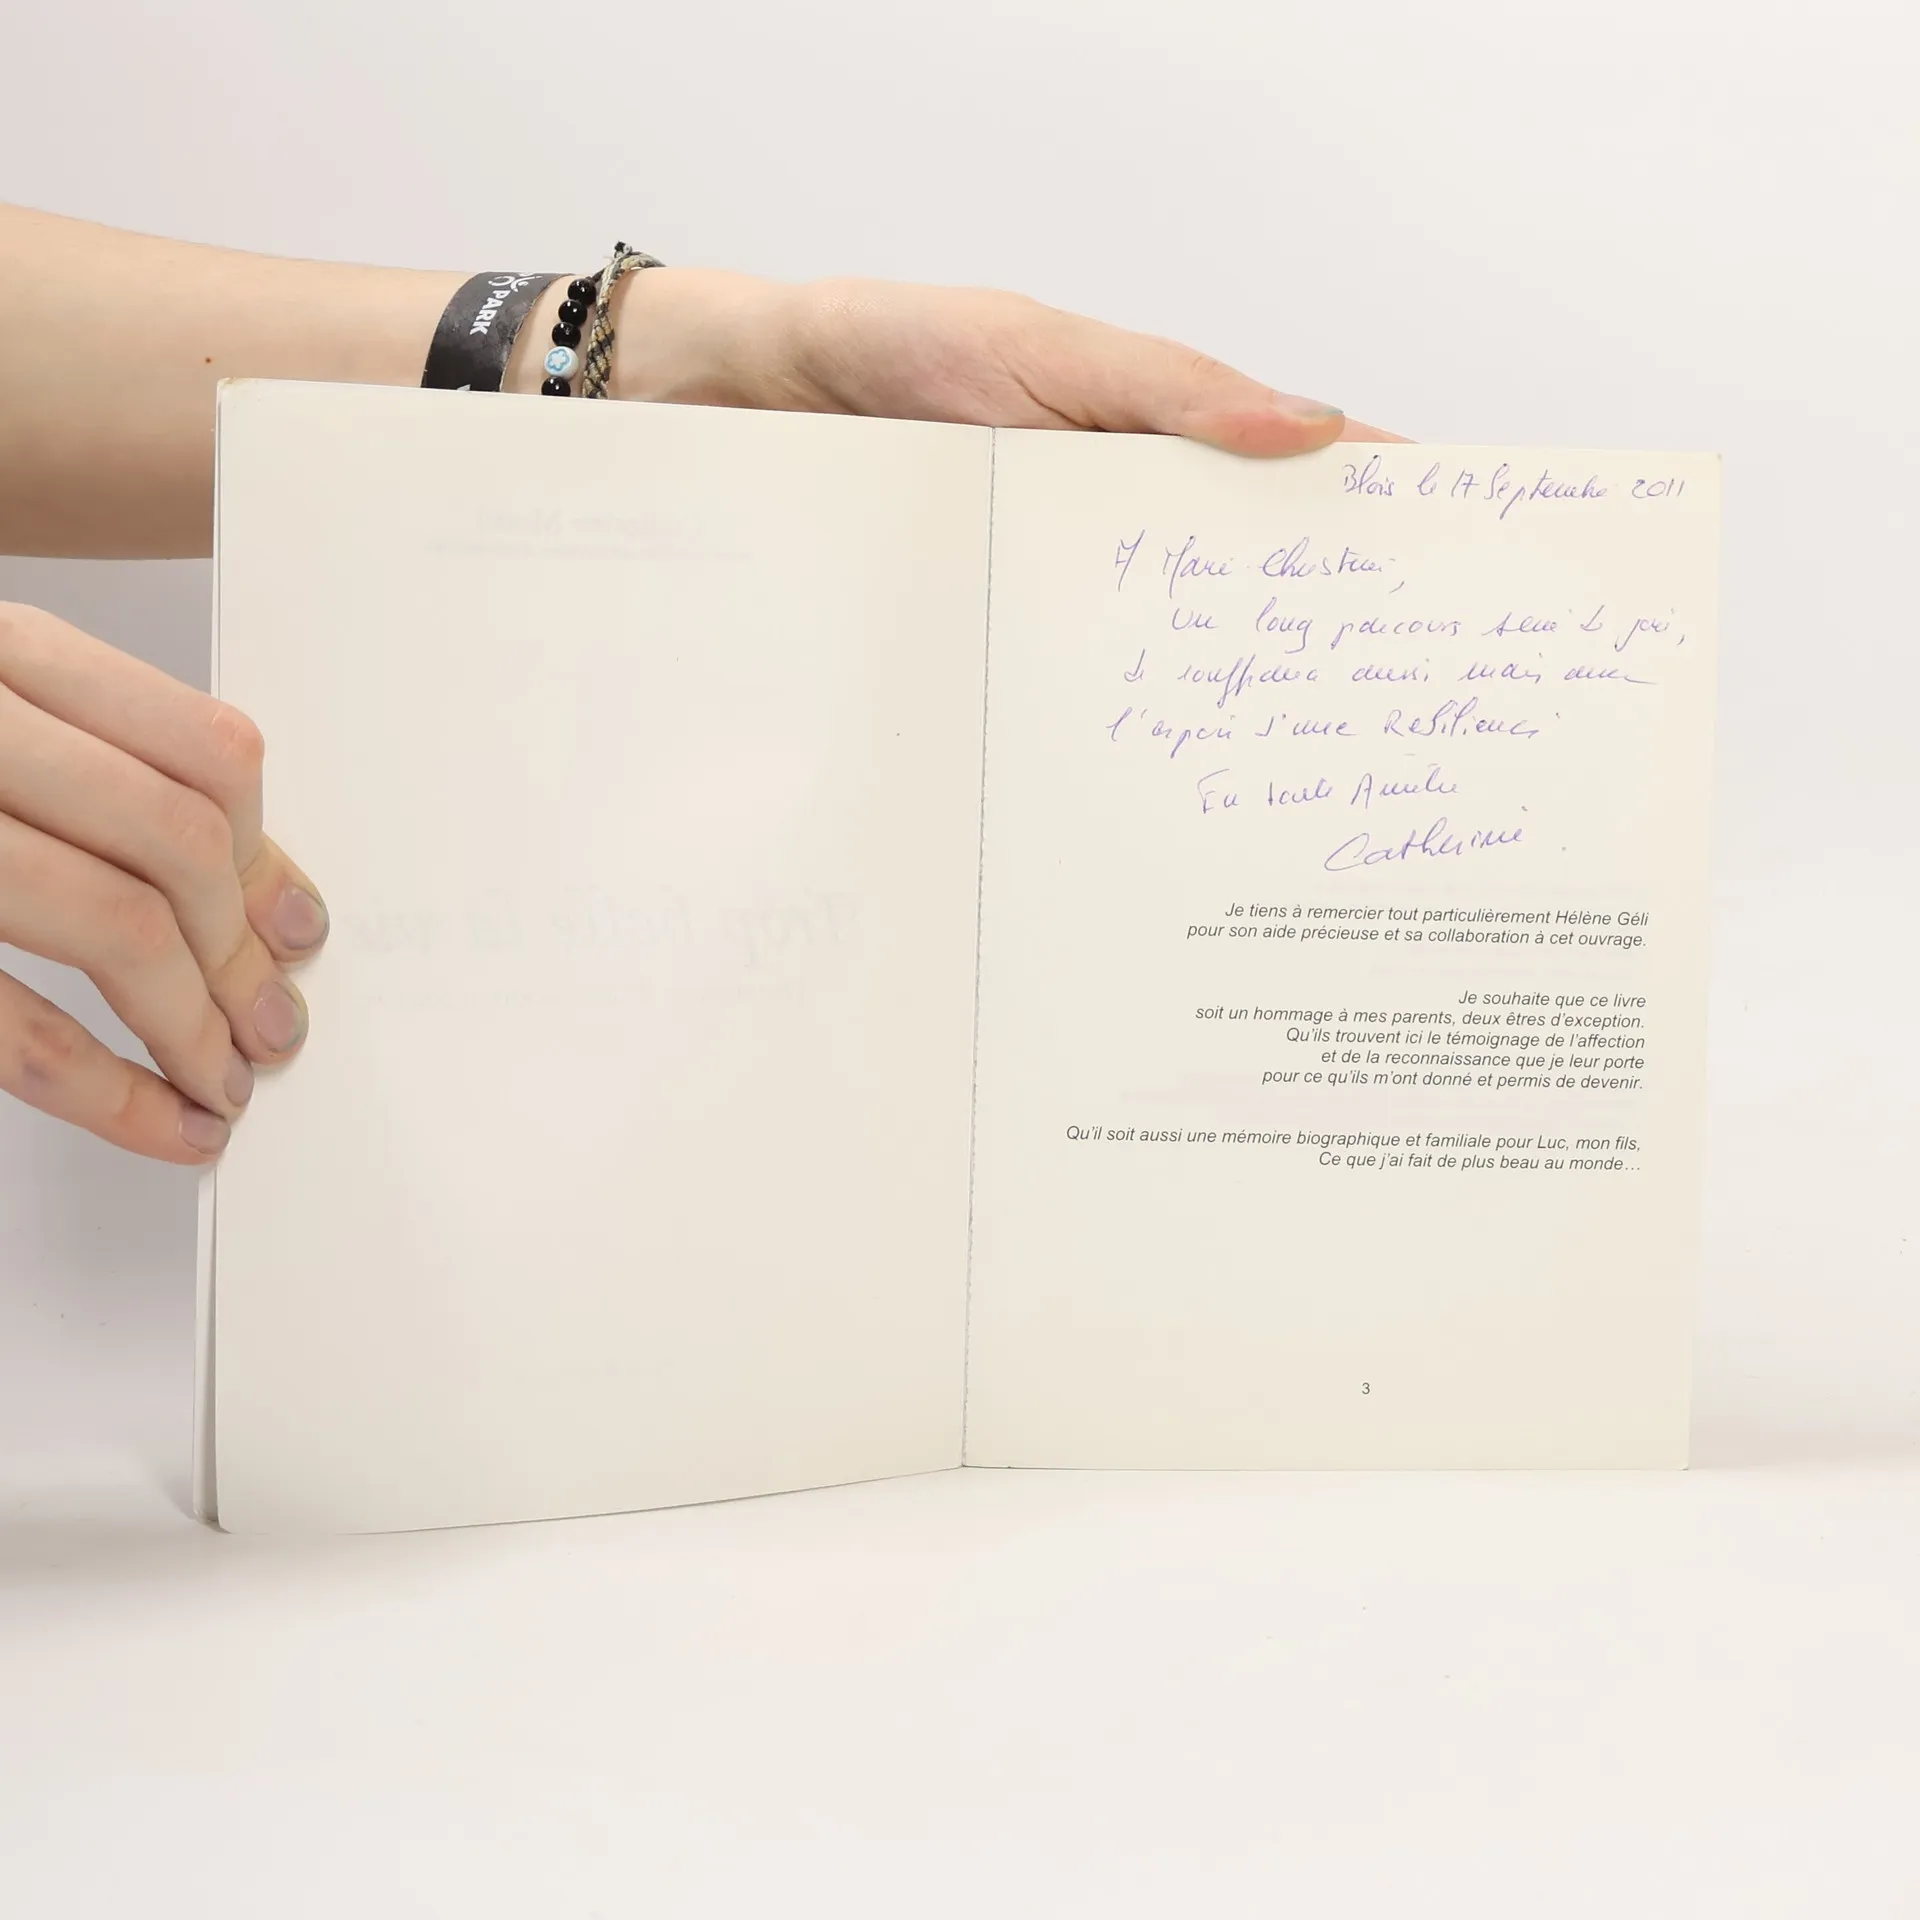 PARK
Blois le 17 Septembre 2011
A Marie-Christine,
Un long parcours semé de joie,
de souffrance aussi mais avec
l'espoir d'une Résilience
En toute Amitié
Catherine
Je tiens à remercier tout particulièrement Hélène Géli
pour son aide précieuse et sa collaboration à cet ouvrage.
Je souhaite que ce livre
soit un hommage à mes parents, deux êtres d'exception.
Qu'ils trouvent ici le témoignage de l'affection
et de la reconnaissance que je leur porte
pour ce qu'ils m'ont donné et permis de devenir.
Qu'il soit aussi une mémoire biographique et familiale pour Luc, mon fils,
Ce que j'ai fait de plus beau au monde…
3